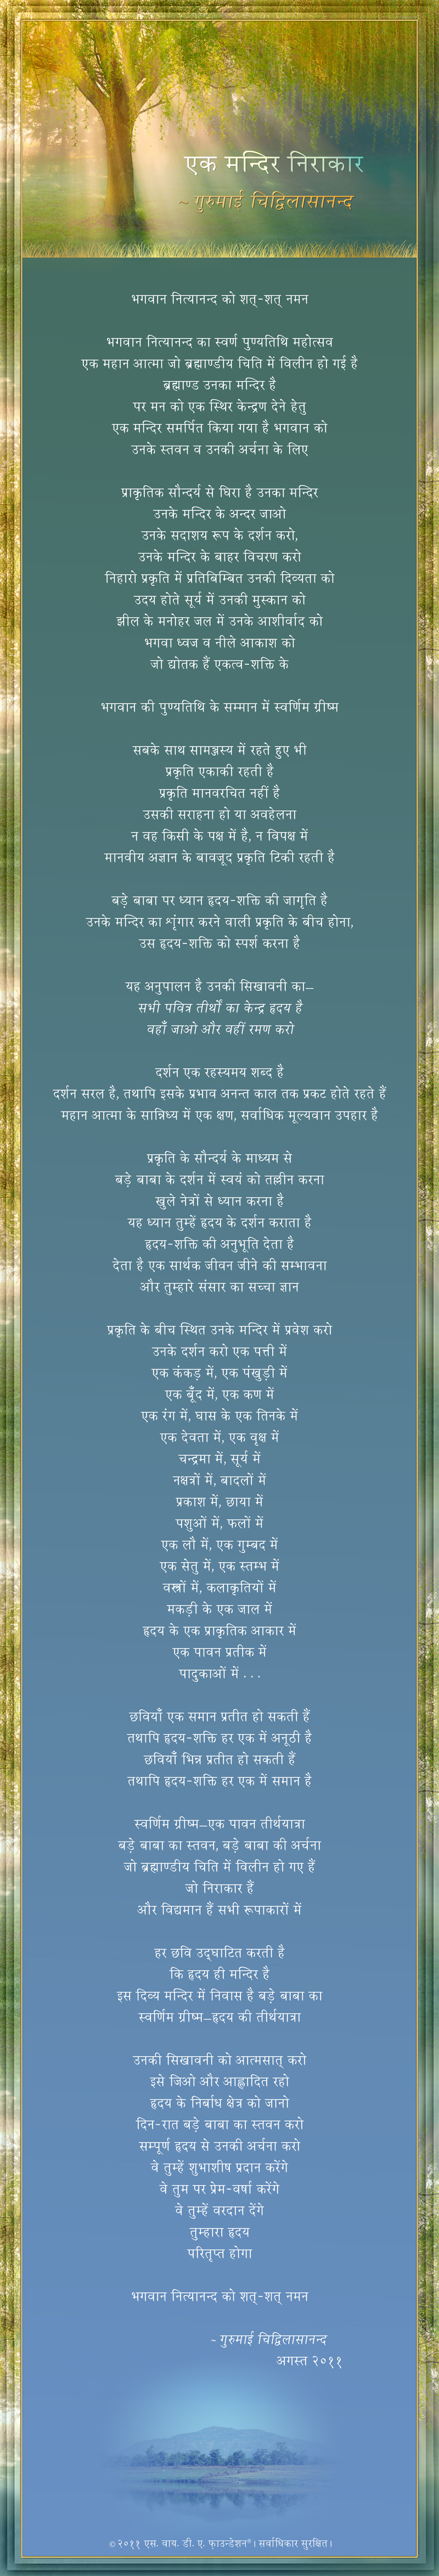 एक मन्दिर निराकार
~ गुरुमाई चिद्विलासानन्द
भगवान नित्यानन्द को शत्-शत् नमन
भगवान नित्यानन्द का स्वर्ण पुण्यतिथि महोत्सव
एक महान आत्मा जो ब्रह्माण्डीय चिति में विलीन हो गई है
ब्रह्माण्ड उनका मन्दिर है
पर मन को एक स्थिर केन्द्रण देने हेतु
एक मन्दिर समर्पित किया गया है भगवान को
उनके स्तवन व उनकी अर्चना के लिए
प्राकृतिक सौन्दर्य से घिरा है उनका मन्दिर
उनके मन्दिर के अन्दर जाओ
उनके सदाशय रूप के दर्शन करो,
उनके मन्दिर के बाहर विचरण करो
निहारो प्रकृति में प्रतिबिम्बित उनकी दिव्यता को
उदय होते सूर्य में उनकी मुस्कान को
झील के मनोहर जल में उनके आशीर्वाद को
भगवा ध्वज व नीले आकाश को
जो द्योतक हैं एकत्व-शक्ति के
भगवान की पुण्यतिथि के सम्मान में स्वर्णिम ग्रीष्म
सबके साथ सामञ्जस्य में रहते हुए भी
प्रकृति एकाकी रहती है
प्रकृति मानवरचित नहीं है
उसकी सराहना हो या अवहेलना
न वह किसी के पक्ष में है, न विपक्ष में
मानवीय अज्ञान के बावजूद प्रकृति टिकी रहती है
बड़े बाबा पर ध्यान हृदय-शक्ति की जागृति है
उनके मन्दिर का शृंगार करने वाली प्रकृति के बीच होना,
उस हृदय-शक्ति को स्पर्श करना है
यह अनुपालन है उनकी सिखावनी का—
सभी पवित्र तीर्थों का केन्द्र हृदय है
वहाँ जाओ और वहीं रमण करो
दर्शन एक रहस्यमय शब्द है
दर्शन सरल है, तथापि इसके प्रभाव अनन्त काल तक प्रकट होते रहते हैं
महान आत्मा के सान्निध्य में एक क्षण, सर्वाधिक मूल्यवान उपहार है
प्रकृति के सौन्दर्य के माध्यम से
बड़े बाबा के दर्शन में स्वयं को तल्लीन करना
खुले नेत्रों से ध्यान करना है
यह ध्यान तुम्हें हृदय के दर्शन कराता है
हृदय-शक्ति की अनुभूति देता है
देता है एक सार्थक जीवन जीने की सम्भावना
और तुम्हारे संसार का सच्चा ज्ञान
प्रकृति के बीच स्थित उनके मन्दिर में प्रवेश करो
उनके दर्शन करो एक पत्ती में
एक कंकड़ में, एक पंखुड़ी में
एक बूँद में, एक कण में
एक रंग में, घास के एक तिनके में
एक देवता में, एक वृक्ष में
चन्द्रमा में, सूर्य में
नक्षत्रों में, बादलों में
प्रकाश में, छाया में
पशुओं में, फलों में
एक लौ में, एक गुम्बद में
एक सेतु में, एक स्तम्भ में
वस्त्रों में, कलाकृतियों में
मकड़ी के एक जाल में
हृदय के एक प्राकृतिक आकार में
एक पावन प्रतीक में
पादुकाओं में . . .
छवियाँ एक समान प्रतीत हो सकती हैं
तथापि हृदय-शक्ति हर एक में अनूठी है
छवियाँ भिन्न प्रतीत हो सकती हैं
तथापि हृदय-शक्ति हर एक में समान है
स्वर्णिम ग्रीष्म—एक पावन तीर्थयात्रा
बड़े बाबा का स्तवन, बड़े बाबा की अर्चना
जो ब्रह्माण्डीय चिति में विलीन हो गए हैं
जो निराकार हैं
और विद्यमान हैं सभी रूपाकारों में
हर छवि उद्घाटित करती है
कि हृदय ही मन्दिर है
इस दिव्य मन्दिर में निवास है बड़े बाबा का
स्वर्णिम ग्रीष्म—हृदय की तीर्थयात्रा
उनकी सिखावनी को आत्मसात् करो
इसे जिओ और आह्लादित रहो
हृदय के निर्बाध क्षेत्र को जानो
दिन-रात बड़े बाबा का स्तवन करो
सम्पूर्ण हृदय से उनकी अर्चना करो
वे तुम्हें शुभाशीष प्रदान करेंगे
वे तुम पर प्रेम-वर्षा करेंगे
वे तुम्हें वरदान देंगे
तुम्हारा हृदय
परितृप्त होगा
भगवान नित्यानन्द को शत्-शत् नमन
~ गुरुमाई चिद्विलासानन्द
अगस्त २०११
©२०११ एस. वाय. डी. ए. फ़ाउन्डेशन®। सर्वाधिकार सुरक्षित।